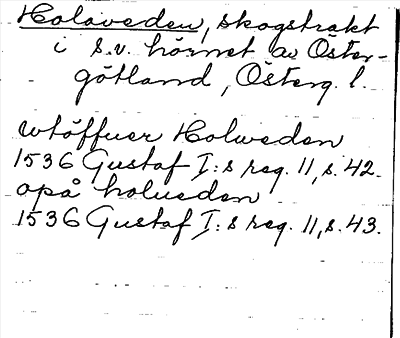 Holaveden, skogstrakt
i s.v. hörnet av Öster-
götland, Österg. l.
wtöffuer Holweden
1536 Gustaf I:s reg. 11, s. 42.
opå holueden
1536 Gustaf I:s reg. 11, s. 43.